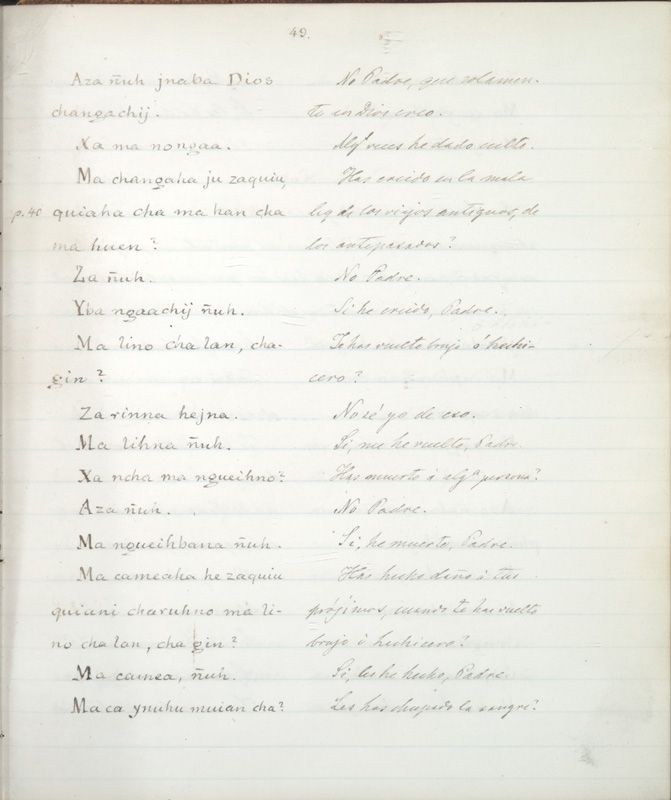 49.
Aza ñuh jnaba Dios No Padre, que solamen-
changachij. te en Dios creo.
Xa ma nongaa. Algs veces he dado culto.
Ma changaha ju zaquiu, Has creido en la mala
p. 40 quiaha cha ma han cha ley de los viejos antiguos, de
ma huen? los antepasados?
Za ñuh. No Padre.
Yba ngaachij ñuh. Si he creido, Padre.
Ma lino cha lan, cha- Te has vuelto brujo ó hechi-
gin? cero?
Za rinna hejna. No sé yo de eso.
Ma lihna ñuh. Si, me he vuelto, Padre.
Xa ncha ma ngueihno? Has muerto á alga persona?
Aza ñuh. No Padre.
Ma ngueihbana ñuh. Si, he muerto, Padre.
Ma cameaha he zaquiu Has hecho daño á tus
quiani charuhno ma li- prójimos, cuando te has vuelto
no cha lan, cha gin? brujo ó hechicero?
Ma camea, ñuh. Si, les he hecho, Padre.
Ma ca ynuhu muian cha? Les has chupado la sangre?